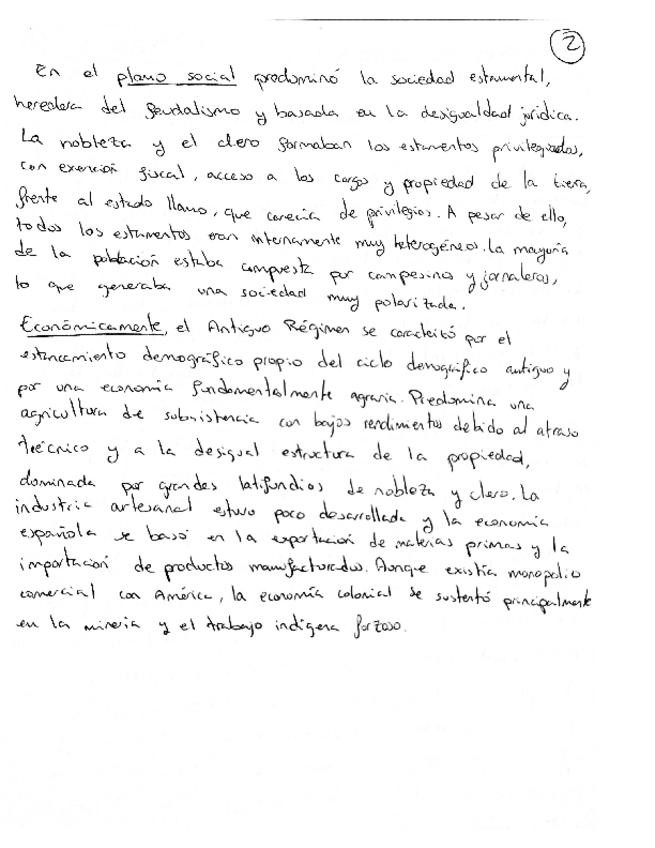 2
En el plano social predominó la sociedad estamental,
heredera del feudalismo y basada en la desigualdad jurídica.
La nobleza y el clero formaban los estamentos privilegiados,
con exención fiscal, acceso a los cargos y propiedad de la tierra,
frente al estado llano, que carecía de privilegios. A pesar de ello,
todos los estamentos eran internamente muy heterogéneos. La mayoría
de la población estaba compuesta por campesinos y jornaleros,
lo que generaba una sociedad muy polarizada.
Económicamente, el Antiguo Régimen se caracterizó por el
estancamiento demográfico propio del ciclo demográfico antiguo y
por una economía fundamentalmente agraria. Predomina una
agricultura de subsistencia con bajos rendimientos debido al atraso
técnico y a la desigual estructura de la propiedad,
dominada por grandes latifundios de nobleza y clero. La
industria artesanal estuvo poco desarrollada y la economía
española se basó en la exportación de materias primas y la
importación de productos manufacturados. Aunque existía monopolio
comercial con América, la economía colonial se sustentó principalmente
en la minería y el trabajo indígena forzoso.